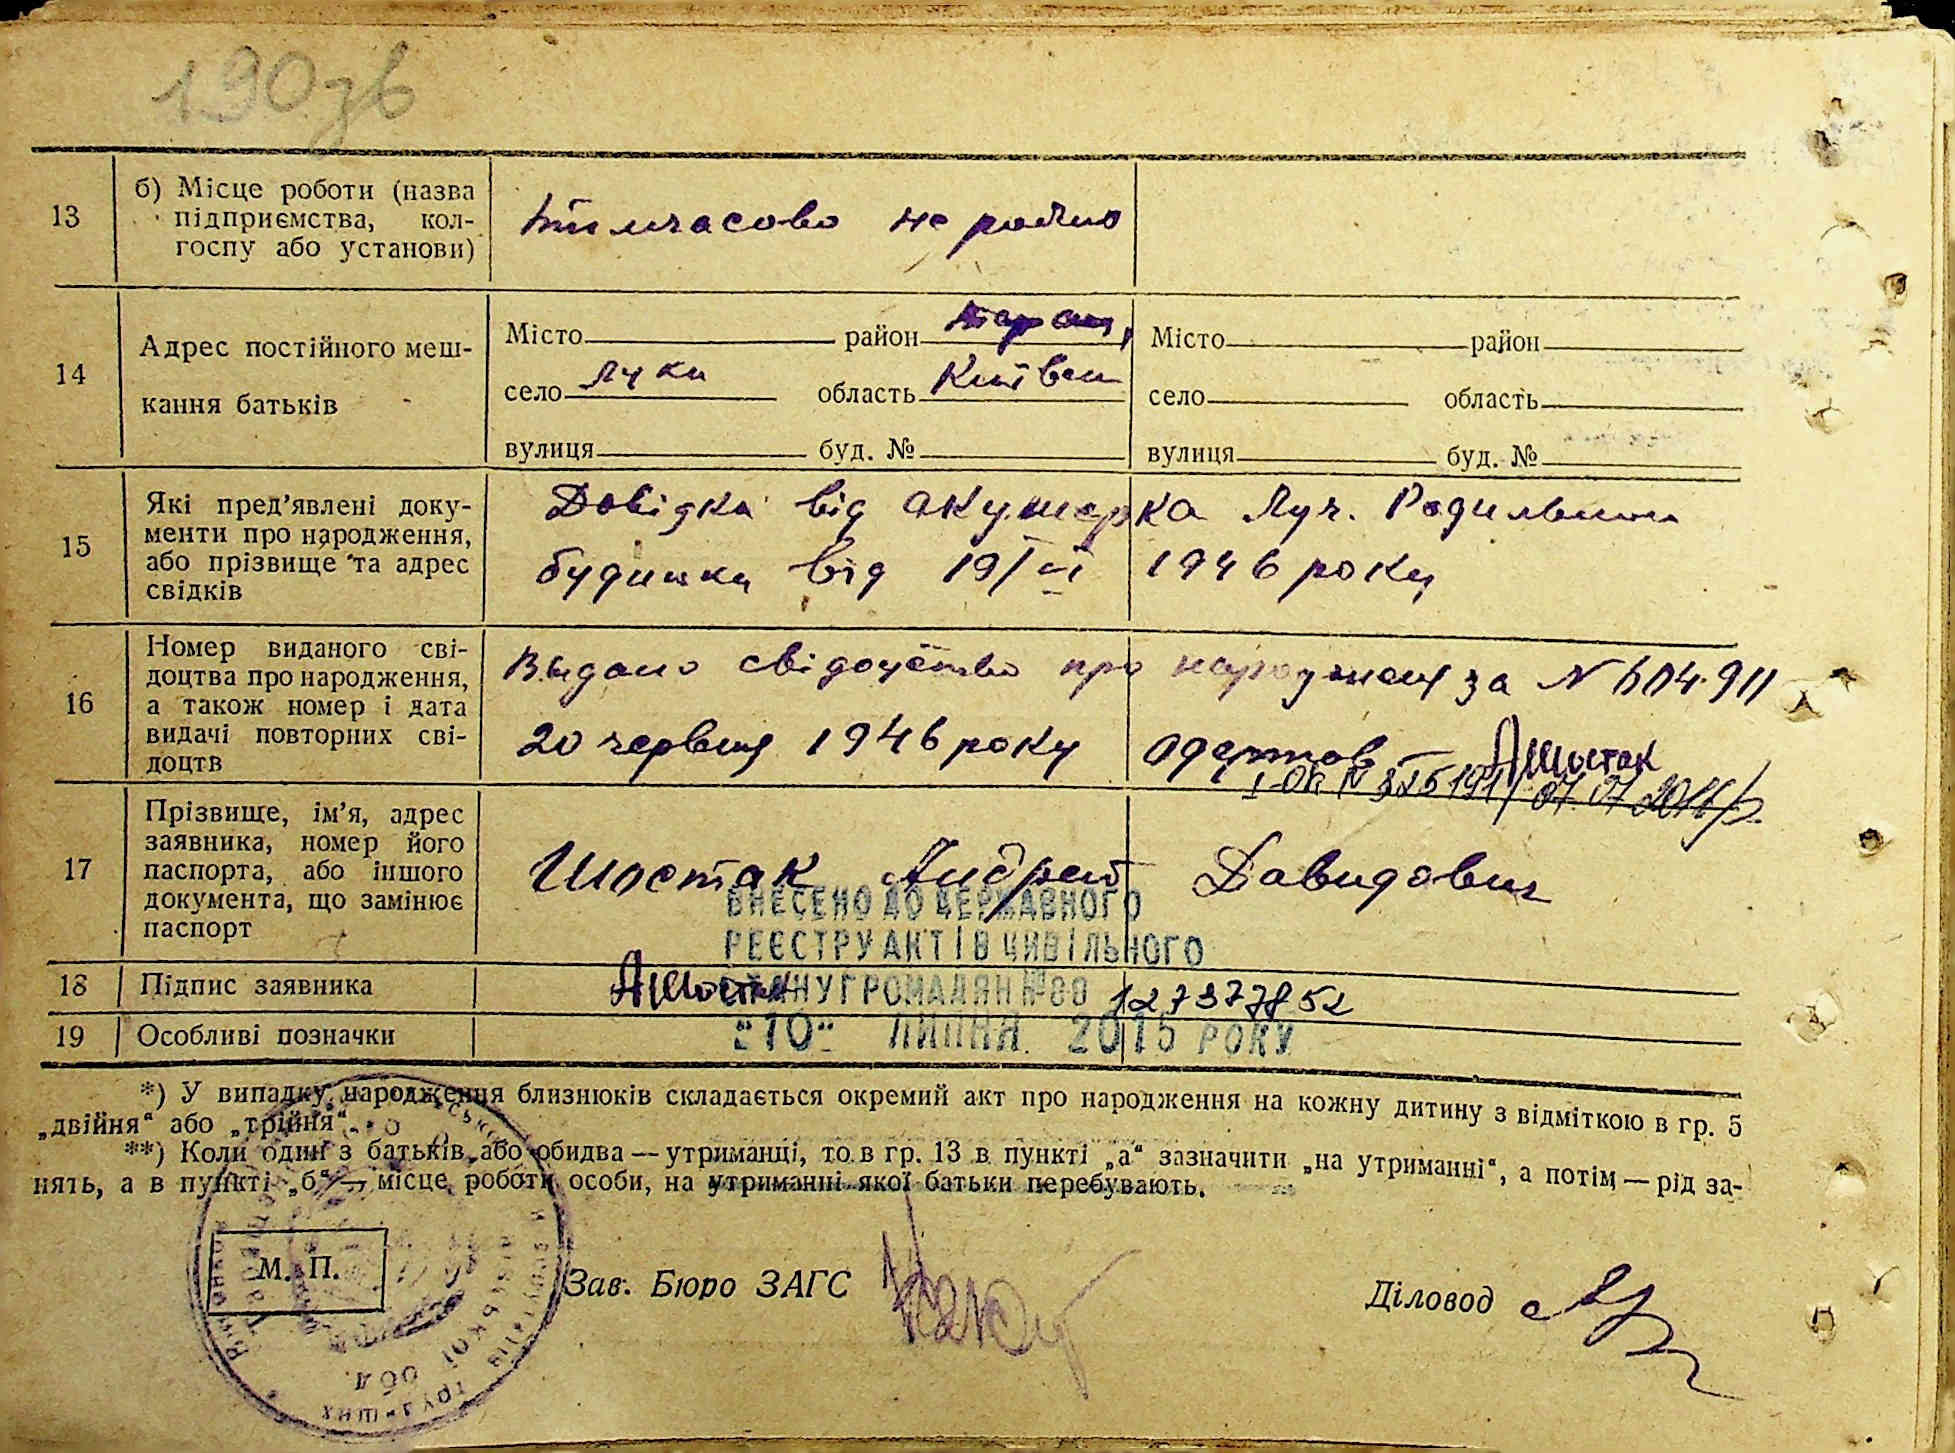 190 зв
13 б) Місце роботи (назва
підприємства, кол-
госпу або установи)
тимчасово не робит
14 Адрес постійного меш-
кання батьків
Місто район Таращ,
село Луки область Київськ
вулиця буд. №
Місто район
село область
вулиця буд. №
15 Які пред’явлені доку-
менти про народження,
або прізвище та адрес
свідків
Довідка від акушерка Луч. Родильним
будинку від 19/VI 1946 року
16 Номер виданого сві-
доцтва про народження,
а також номер і дата
видачі повторних сві-
доцтв
Выдано свідоцтво про за № 604.911
20 червня 1946 року одержав АШостак
І-ОК № 325191 07.07.2015р.
17 Прізвище, ім’я, адрес
заявника, номер його
паспорта, або іншого
документа, що замінює
паспорт
Шостак Андрей Давидович
ВНЕСЕНО ДО ДЕРЖАВНОГО
РЕЄСТРУ АКТІВ ЦИВІЛЬНОГО
СТАНУ ГРОМАДЯН №00 127377852
"10" ЛИПНЯ 2015 РОКУ
18 Підпис заявника АШостак
19 Особливі позначки
*) У випадку народження близнюків складається окремий акт про народження на кожну дитину з відміткою в гр. 5
„двійня“ або „трійня“.
**) Коли один з батьків або обидва — утриманці, то в гр. 13 в пункті „а“ зазначити „на утриманні“, а потім — рід за-
нять, а в пункті „б“ — місце роботи особи, на утриманні якої батьки перебувають.
М. П.
Зав. Бюро ЗАГС
Діловод